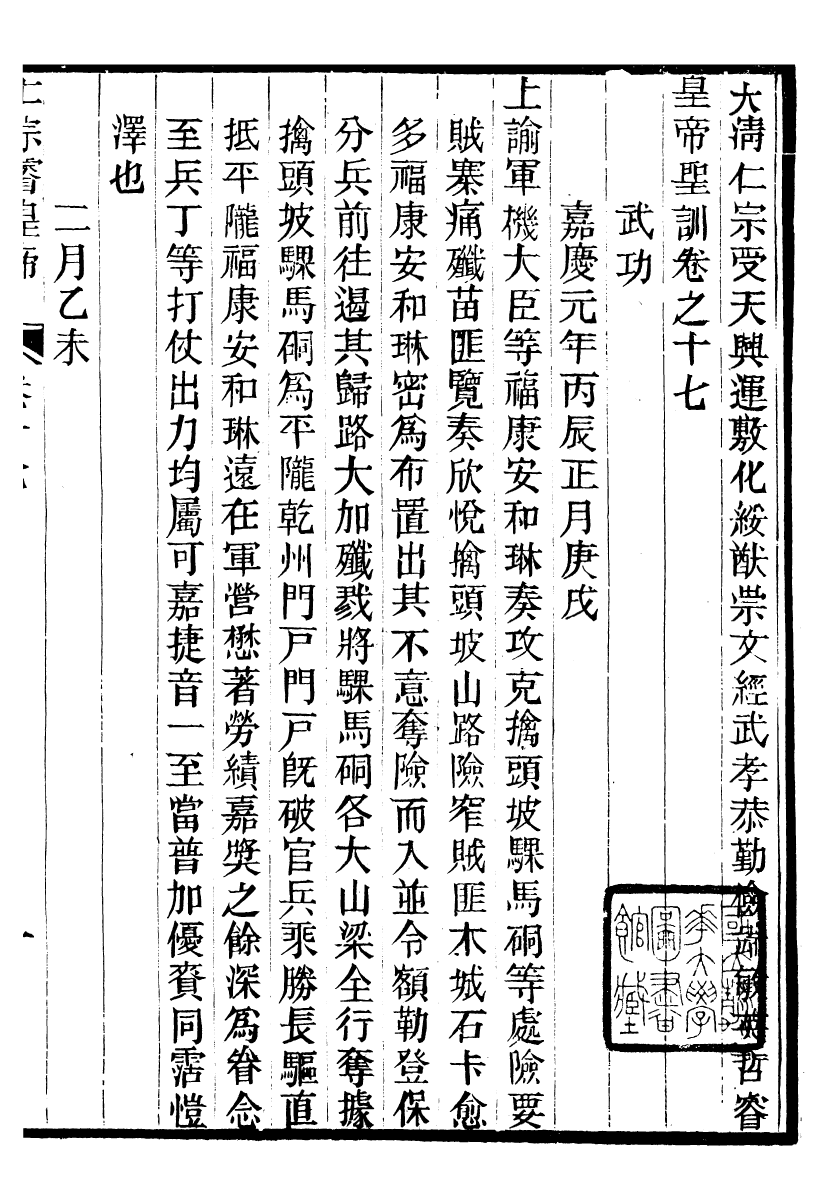 大淸仁宗受天興運敷化綏猷崇文經武孝恭勤儉端敏英哲睿
皇帝聖訓卷之十七
武功
嘉慶元年丙辰正月庚戌
上諭軍機大臣等福康安和琳奏攻克擒頭坡騍馬硐等處險要
賊寨痛殲苗匪覽奏欣悅擒頭坡山路險窄賊匪木城石卡愈
多福康安和琳密爲布置出其不意奪險而入並令額勒登保
分兵前往遏其歸路大加殲戮將騍馬硐各大山梁全行奪據
擒頭坡騍馬硐爲平隴乾州門戸門戸旣破官兵乘勝長驅直
抵平隴福康安和琳遠在軍營懋著勞績嘉獎之餘深爲眷念
至兵丁等打仗出力均屬可嘉捷音一至當普加優賚同霑愷
澤也
二月乙未
仁宗睿皇帝
卷十七
一
國立清華大學圖書館藏